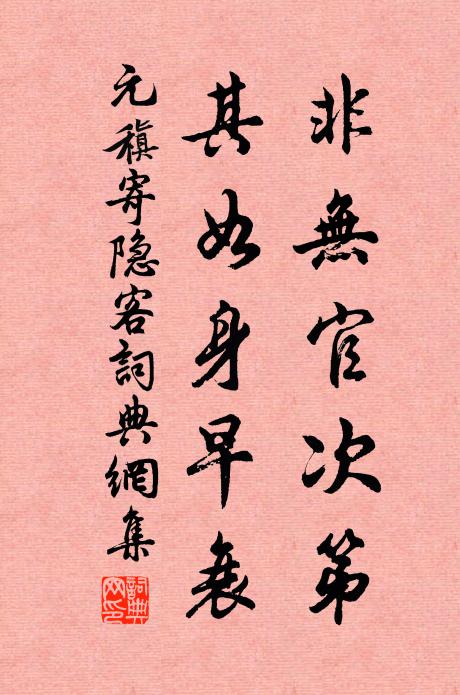 非無官次第
其如身早衰
元稹寄隐客詞典網集
詞典網印